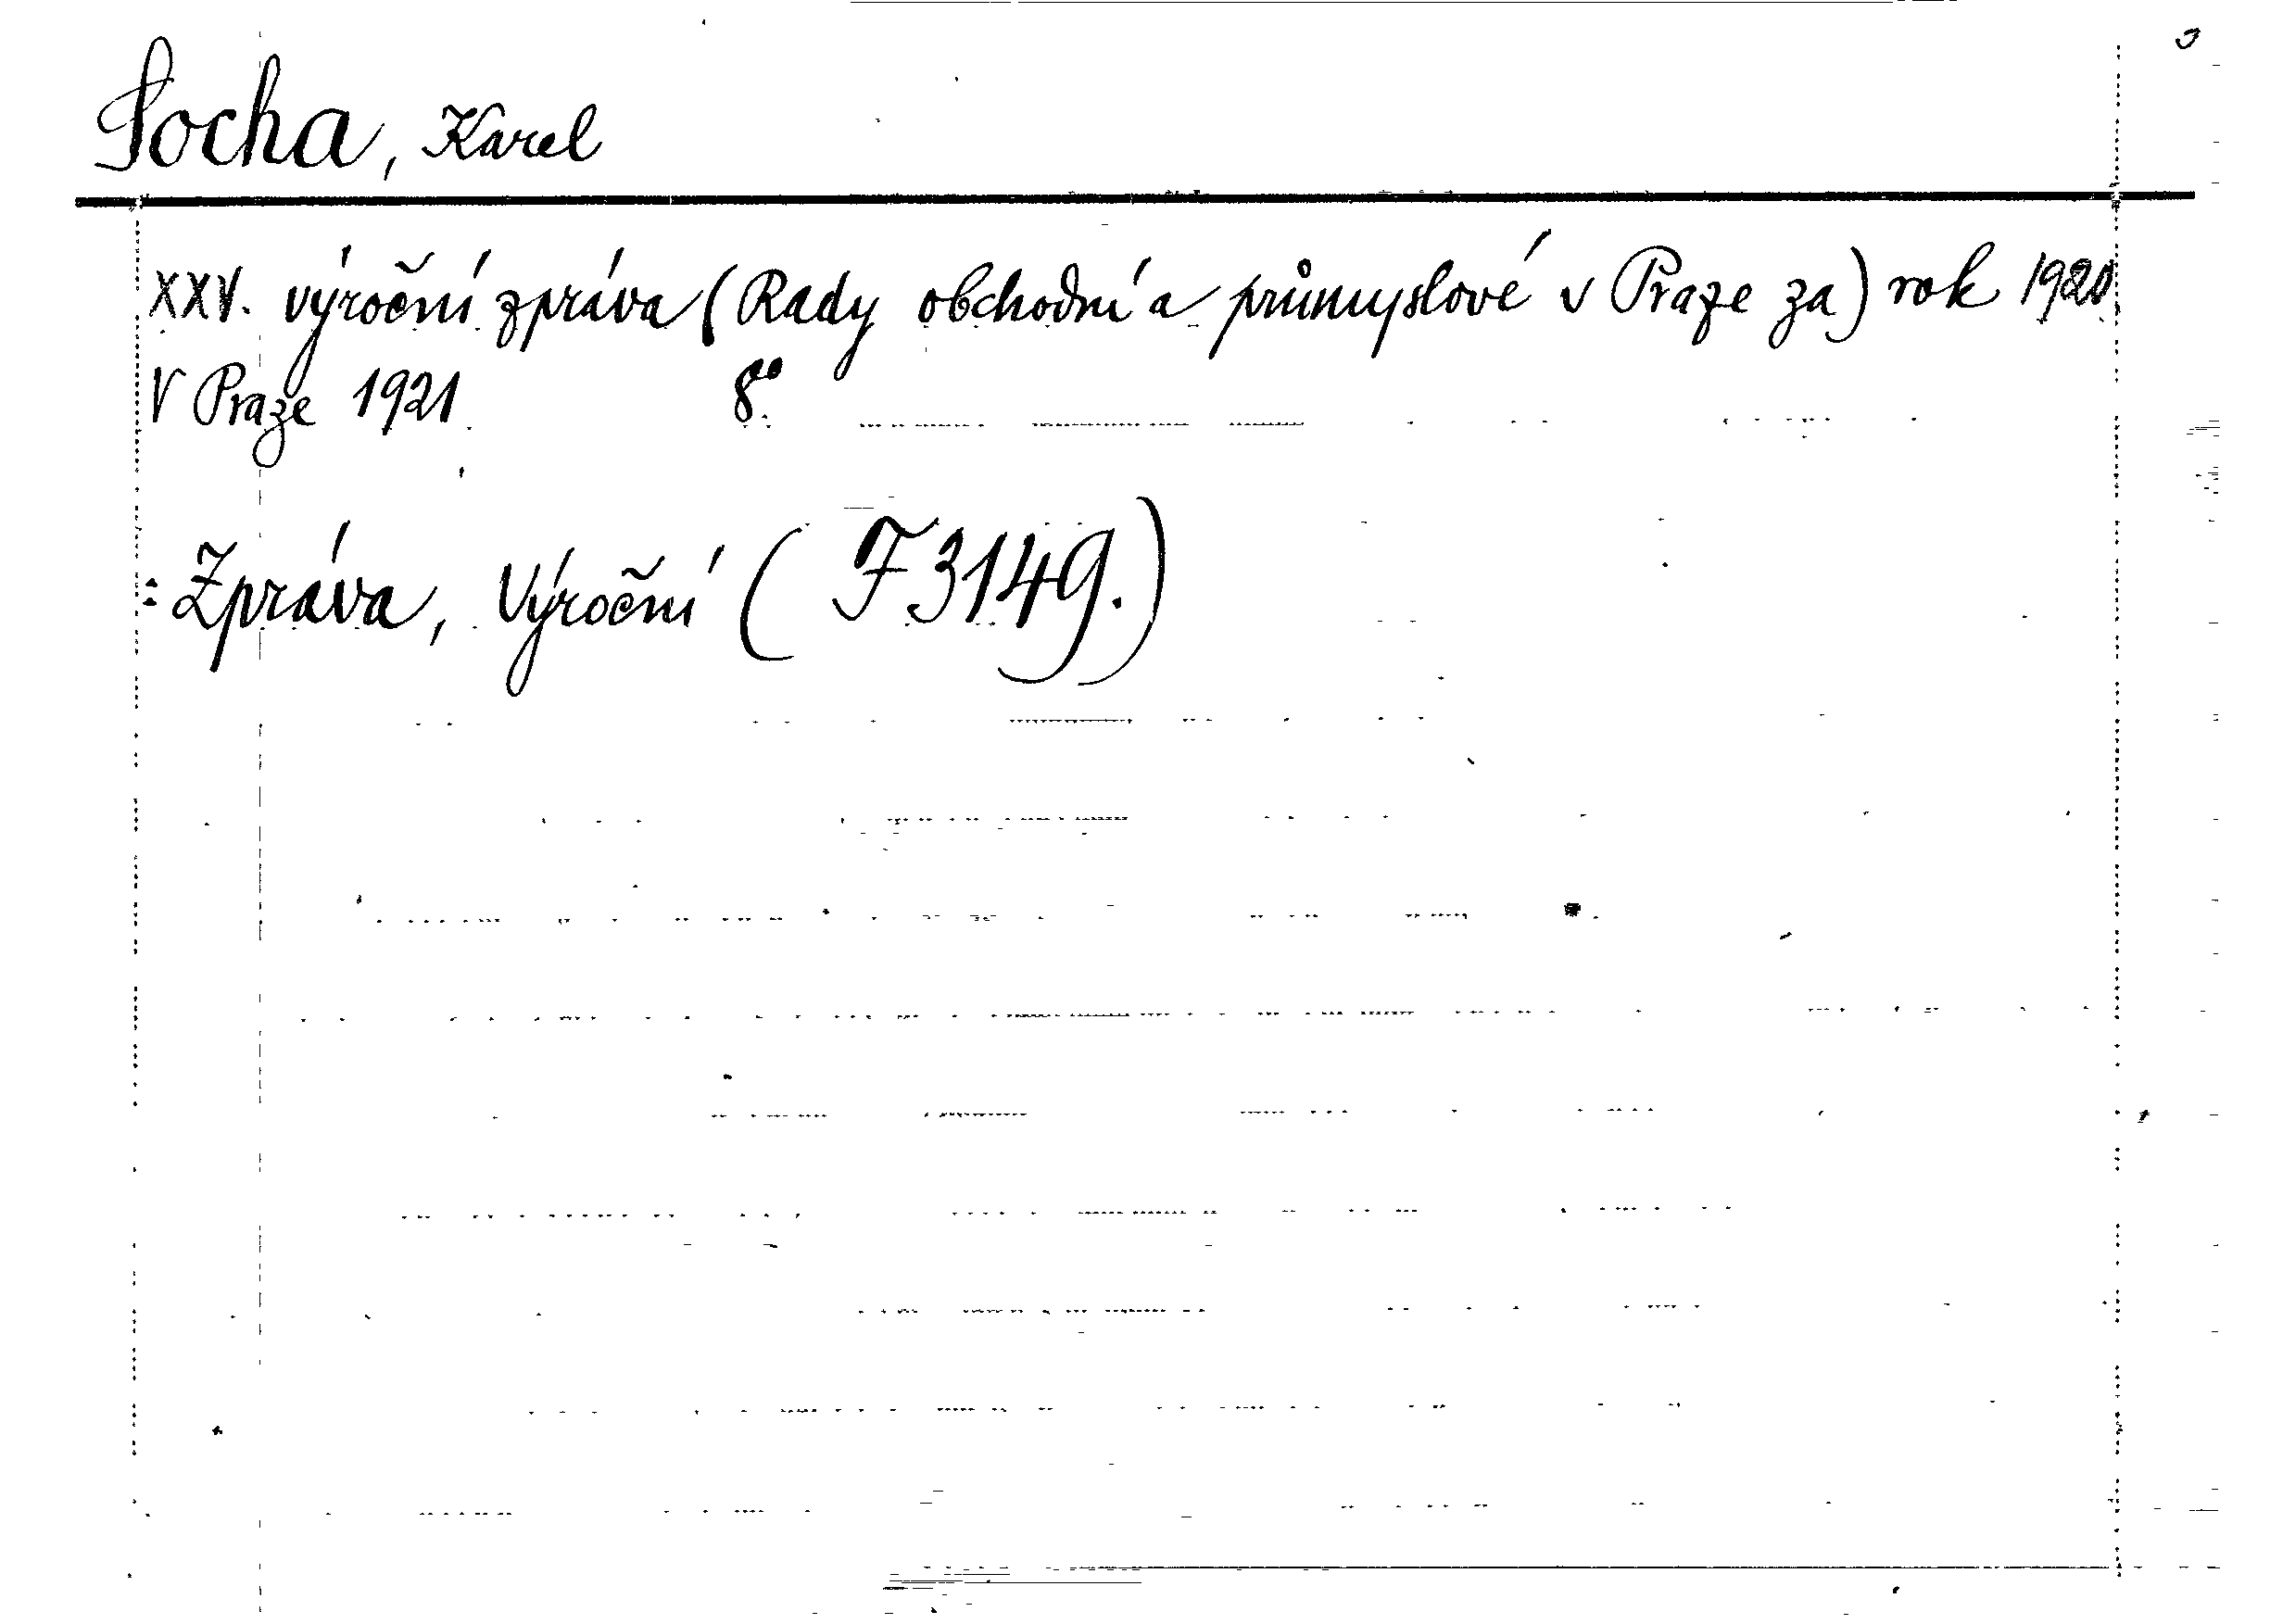 Socha, Karel
XXV. výroční zpráva (Rady obchodní a průmyslové v Praze za) rok 1920.
V Praze 1921. 8°.
: Zpráva, Výroční (F 3149.)